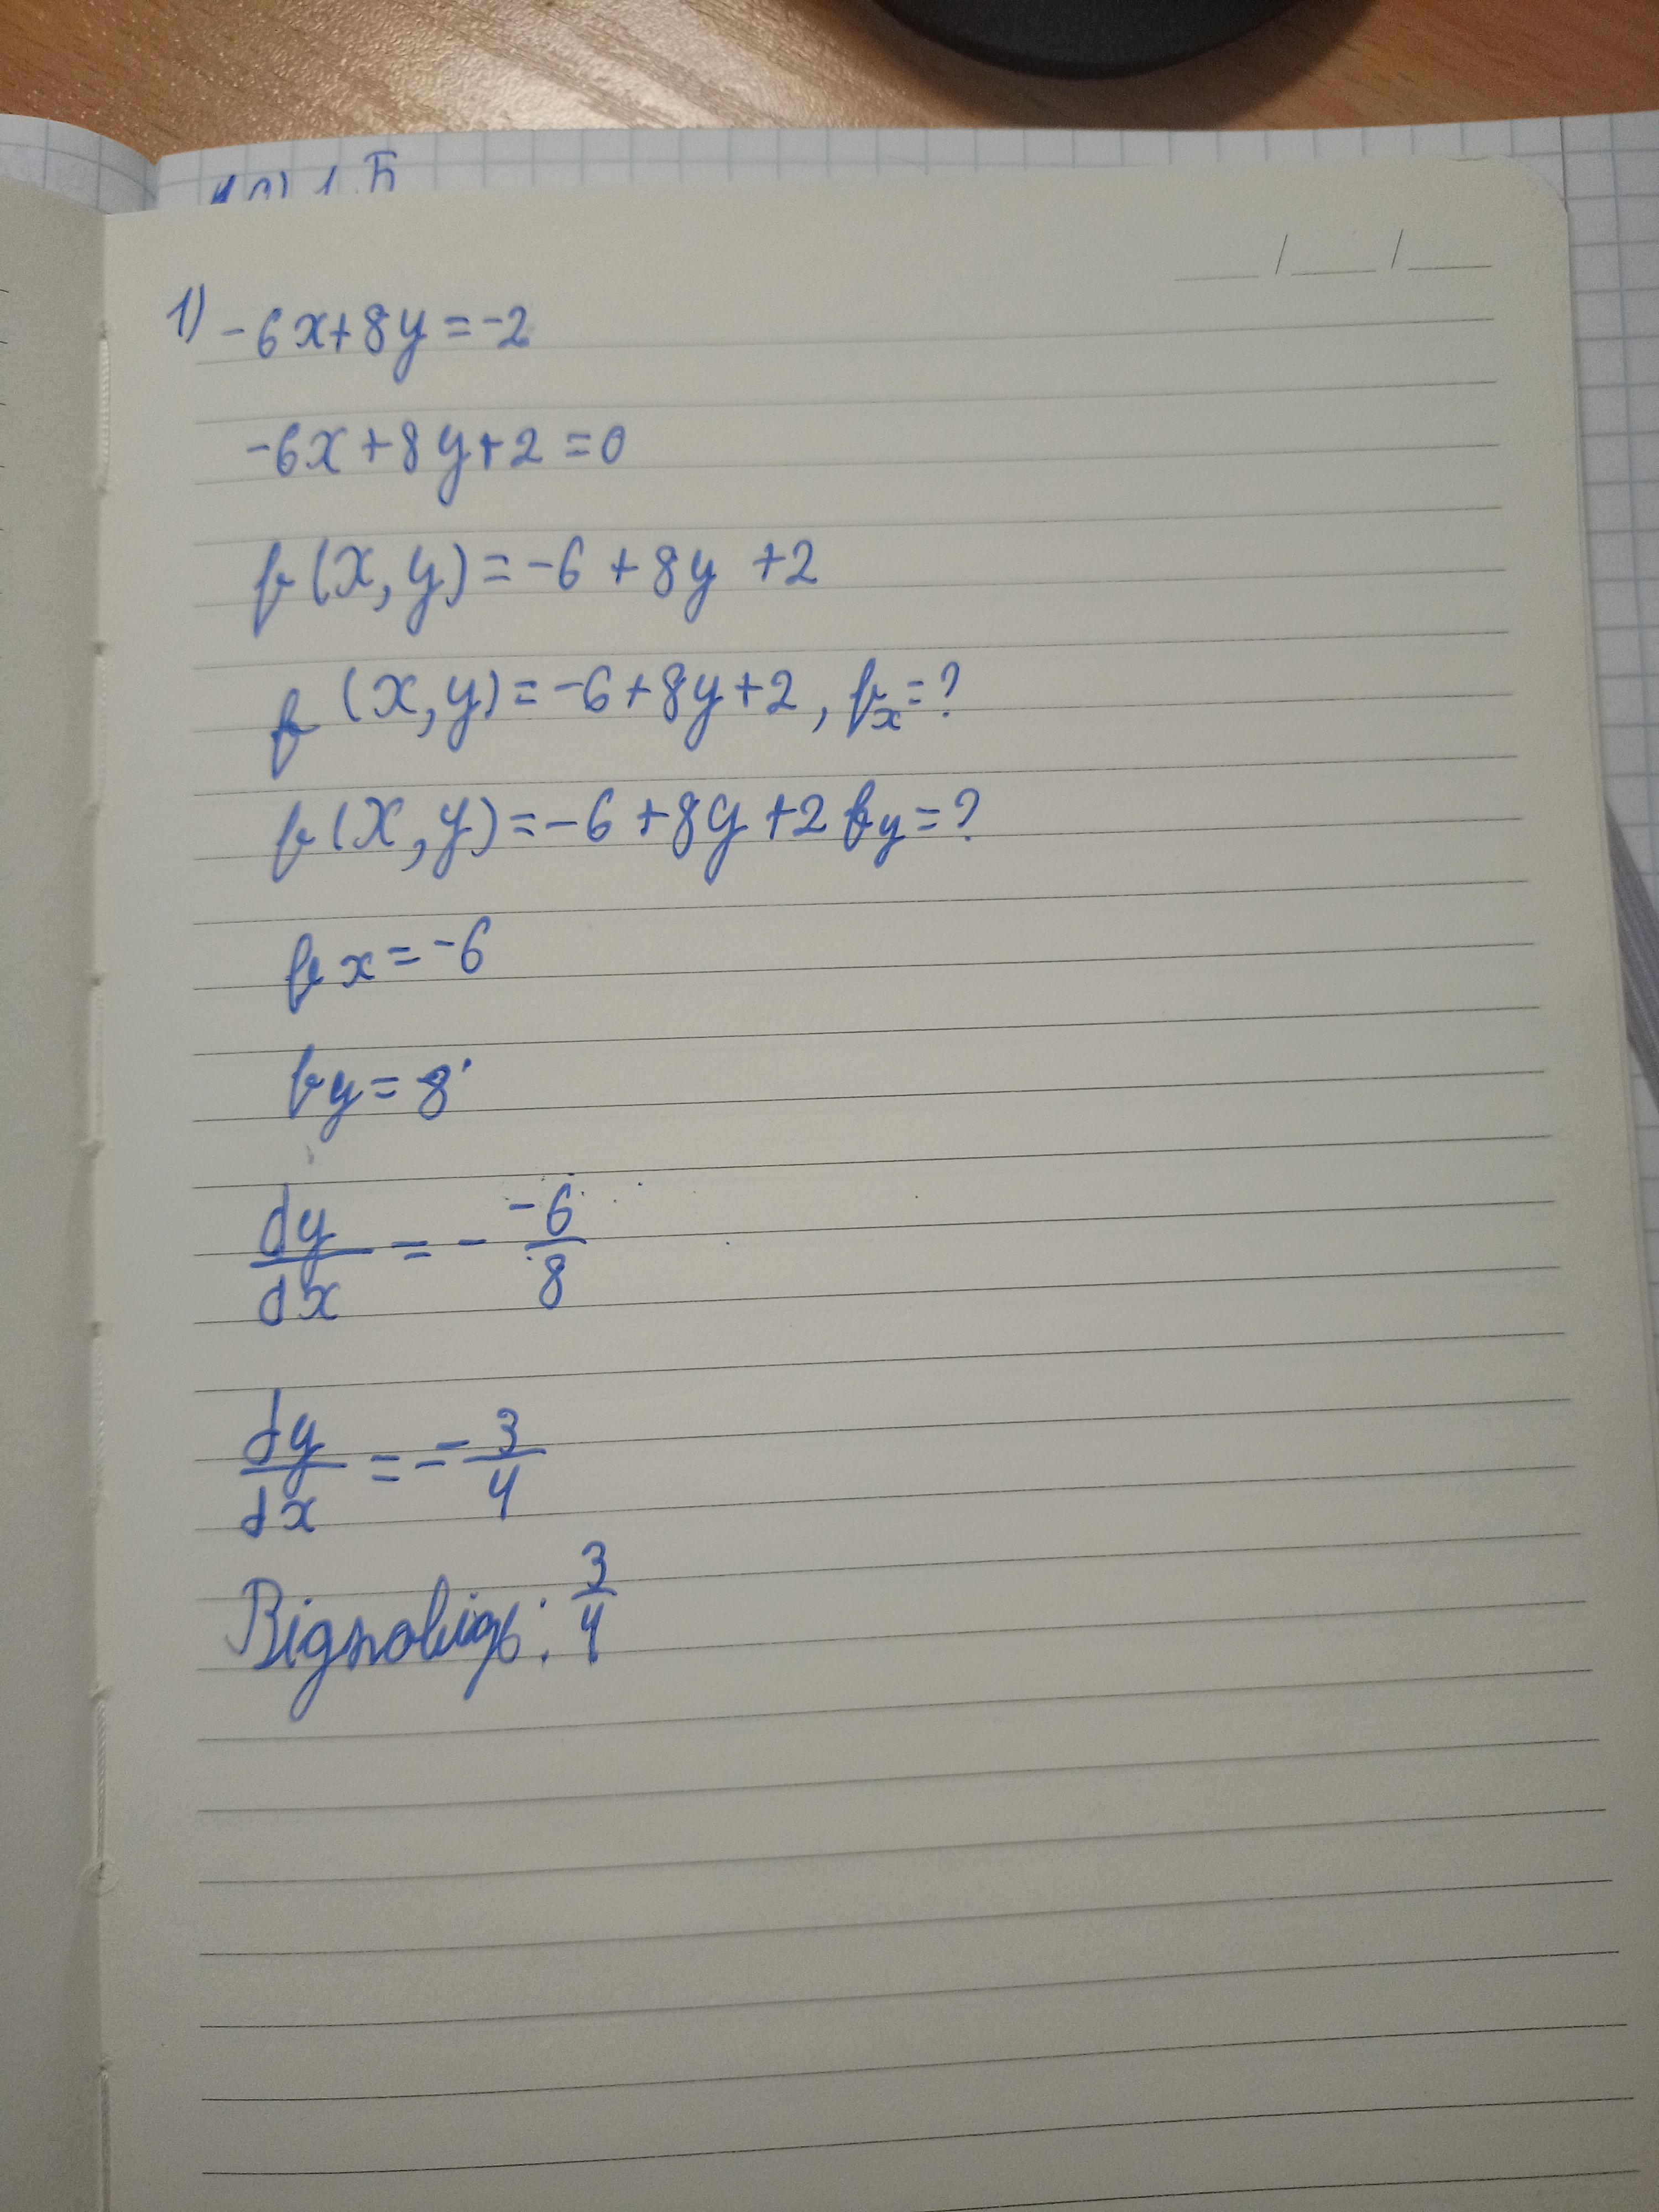 1) -6x+8y=-2
-6x+8y+2=0
f(x,y)=-6+8y+2
f(x,y)=-6+8y+2, fx=?
f(x,y)=-6+8y+2 fy=?
fx=-6
fy=8
dy/dx = - -6/8
dy/dx = - - 3/4
Відповідь: 3/4